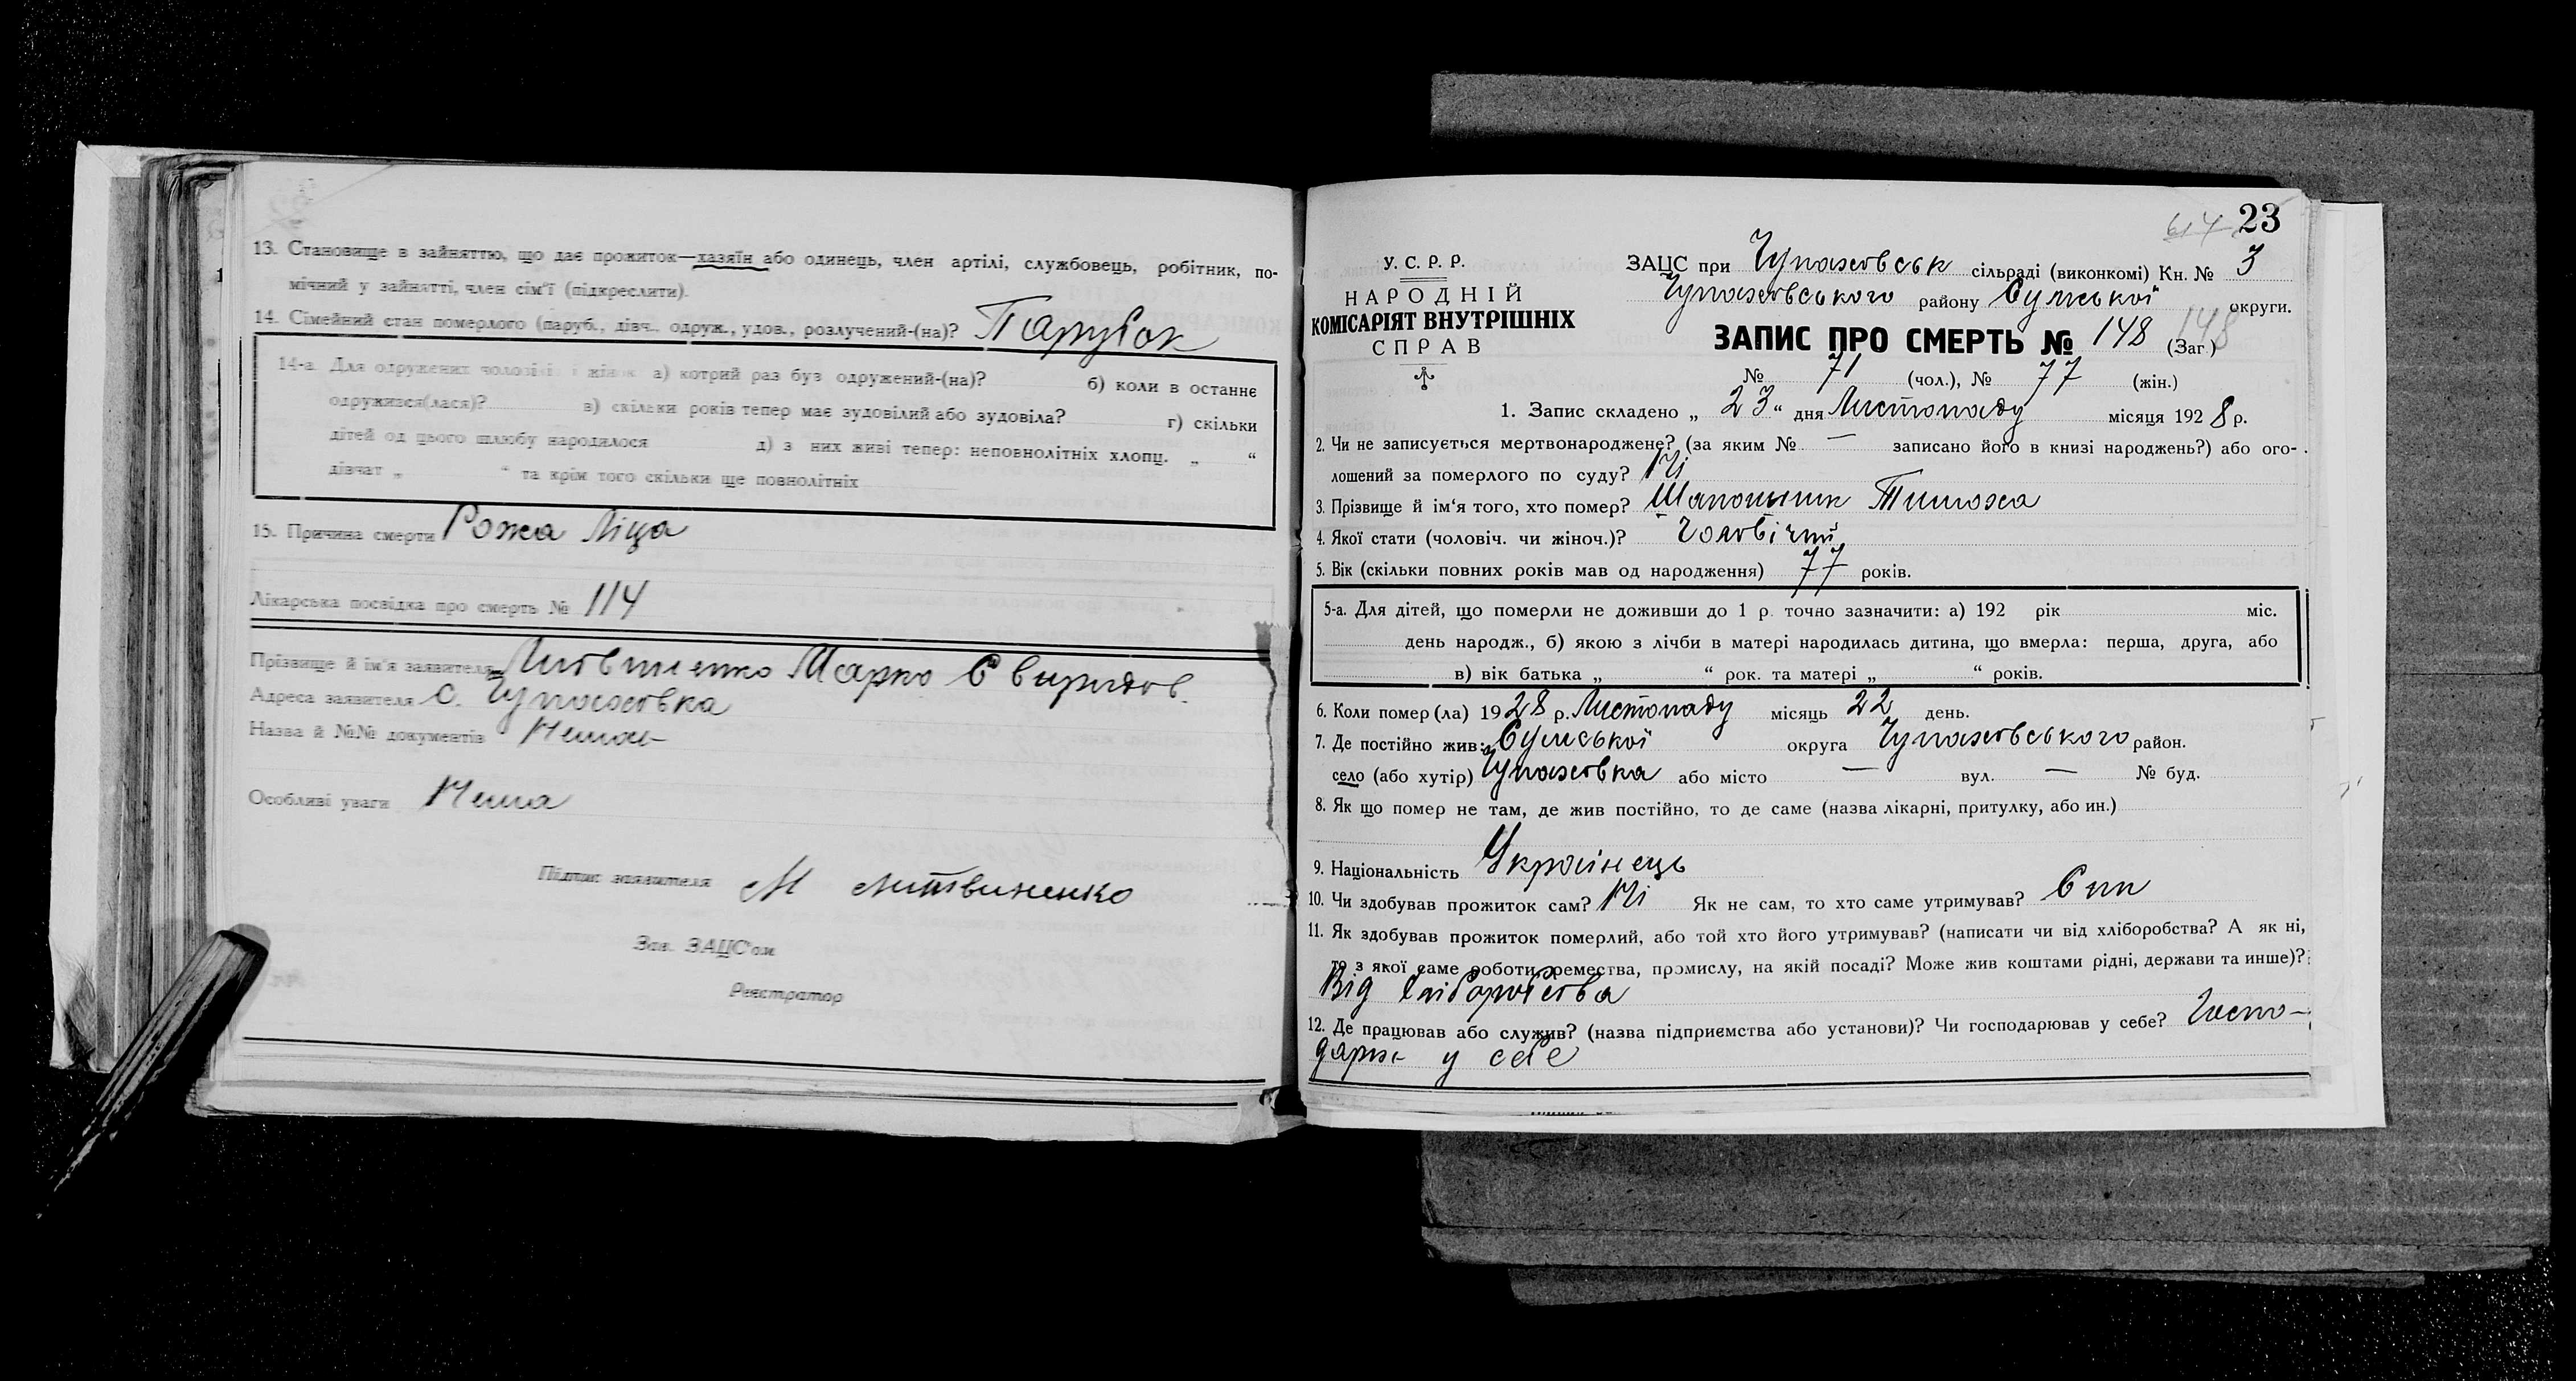 13. Становище в зайняттю, що дає прожиток—хазяїн або одинець, член артілі, службовець, робітник, по-
мічний у зайнятті, член сім'ї (підкреслити).
14. Сімейний стан померлого (паруб., дівч., одруж., удов., розлучений-(на)? Парубок
14-а. Для одружених чоловіків і жінок а) котрий раз був одружений-(на)? б) коли в останнє
одружився(лася)? в) скільки років тепер має зудовілий або зудовіла? г) скільки
дітей од цього шлюбу народилося д) з них живі тепер: неповнолітніх хлопц. „ “
дівчат „ “ та крім того скільки ще повнолітніх
15. Причина смерти Рожа Ліца
Лікарська посвідка про смерть № 114
Прізвище й ім'я заявителя Литвиненко Марко Свиридов.
Адреса заявителя с. Чупаховка
Назва й №№ документів Немає
Особливі уваги Нема
Підпис заявителя М Литвиненко
Зав. ЗАЦС'ом
Реєстратор
614 23
У. С. Р. Р.
НАРОДНІЙ
КОМІСАРІЯТ ВНУТРІШНІХ
СПРАВ
ЗАЦС при Чупаховськ сільраді (виконкомі) Кн. № 3
Чупаховського району Сумської округи.
ЗАПИС ПРО СМЕРТЬ № 148 (Заг.) 148
№ 71 (чол.), № 77 (жін.)
1. Запис складено „ 23 “ дня Листопаду місяця 1928 р.
2. Чи не записується мертвонароджене? (за яким № — записано його в книзі народжень?) або ого-
лошений за померлого по суду? Ні
3. Прізвище й ім'я того, хто помер? Тимоха
4. Якої стати (чоловіч. чи жіноч.)? Чоловічий
5. Вік (скільки повних років мав од народження) 77 років.
5-а. Для дітей, що померли не доживши до 1 р. точно зазначити: а) 192 рік міс.
день народж., б) якою з лічби в матері народилась дитина, що вмерла: перша, друга, або
в) вік батька „ “ рок. та матері „ “ років.
6. Коли помер(ла) 1928 р. Листопаду місяць 22 день.
7. Де постійно жив: Сумської округа Чупаховського район.
село (або хутір) Чупаховка або місто — вул. — № буд.
8. Як що помер не там, де жив постійно, то де саме (назва лікарні, притулку, або ин.)
9. Національність Українець
10. Чи здобував прожиток сам? Ні Як не сам, то хто саме утримував? Син
11. Як здобував прожиток померлий, або той хто його утримував? (написати чи від хліборобства? А як ні,
то з якої саме роботи, ремества, промислу, на якій посаді? Може жив коштами рідні, держави та инше)?
Від хліборобства
12. Де працював або служив? (назва підприємства або установи)? Чи господарював у себе? Госпо-
дарює у себе